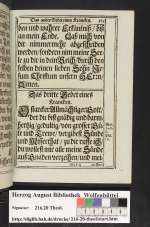 Das ander Gebet eines Krancken.
ben und wahrer Erkäntnüs biß
an mein Ende. Las mich von
dir nimmermehr abgescheiden
werden / sondern nim meine See-
le zu dir in dein Reich / durch den
selben deinen lieben Sohn Je-
sum Christum unsern HErrn /
Amen.
Das dritte Gebet eines
Krancken.
starcker Allmächtiger Gott /
der du bist gnädig und barm-
hertzig / gedultig / von grosser Gü-
te und Treue /
und Missethat / zu dir ruffe ich
du wollest mir alle meine Sünde
aus Gnaden verzeihen / und mei-
Herzog August Bibliothek Wolfenbüttel
Signatur: 216.20 Theol.
http://diglib.hab.de/drucke/216-20-theol/start.htm